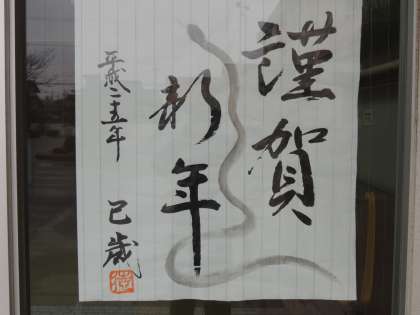 謹賀
新年
平成二十五年
巳歳